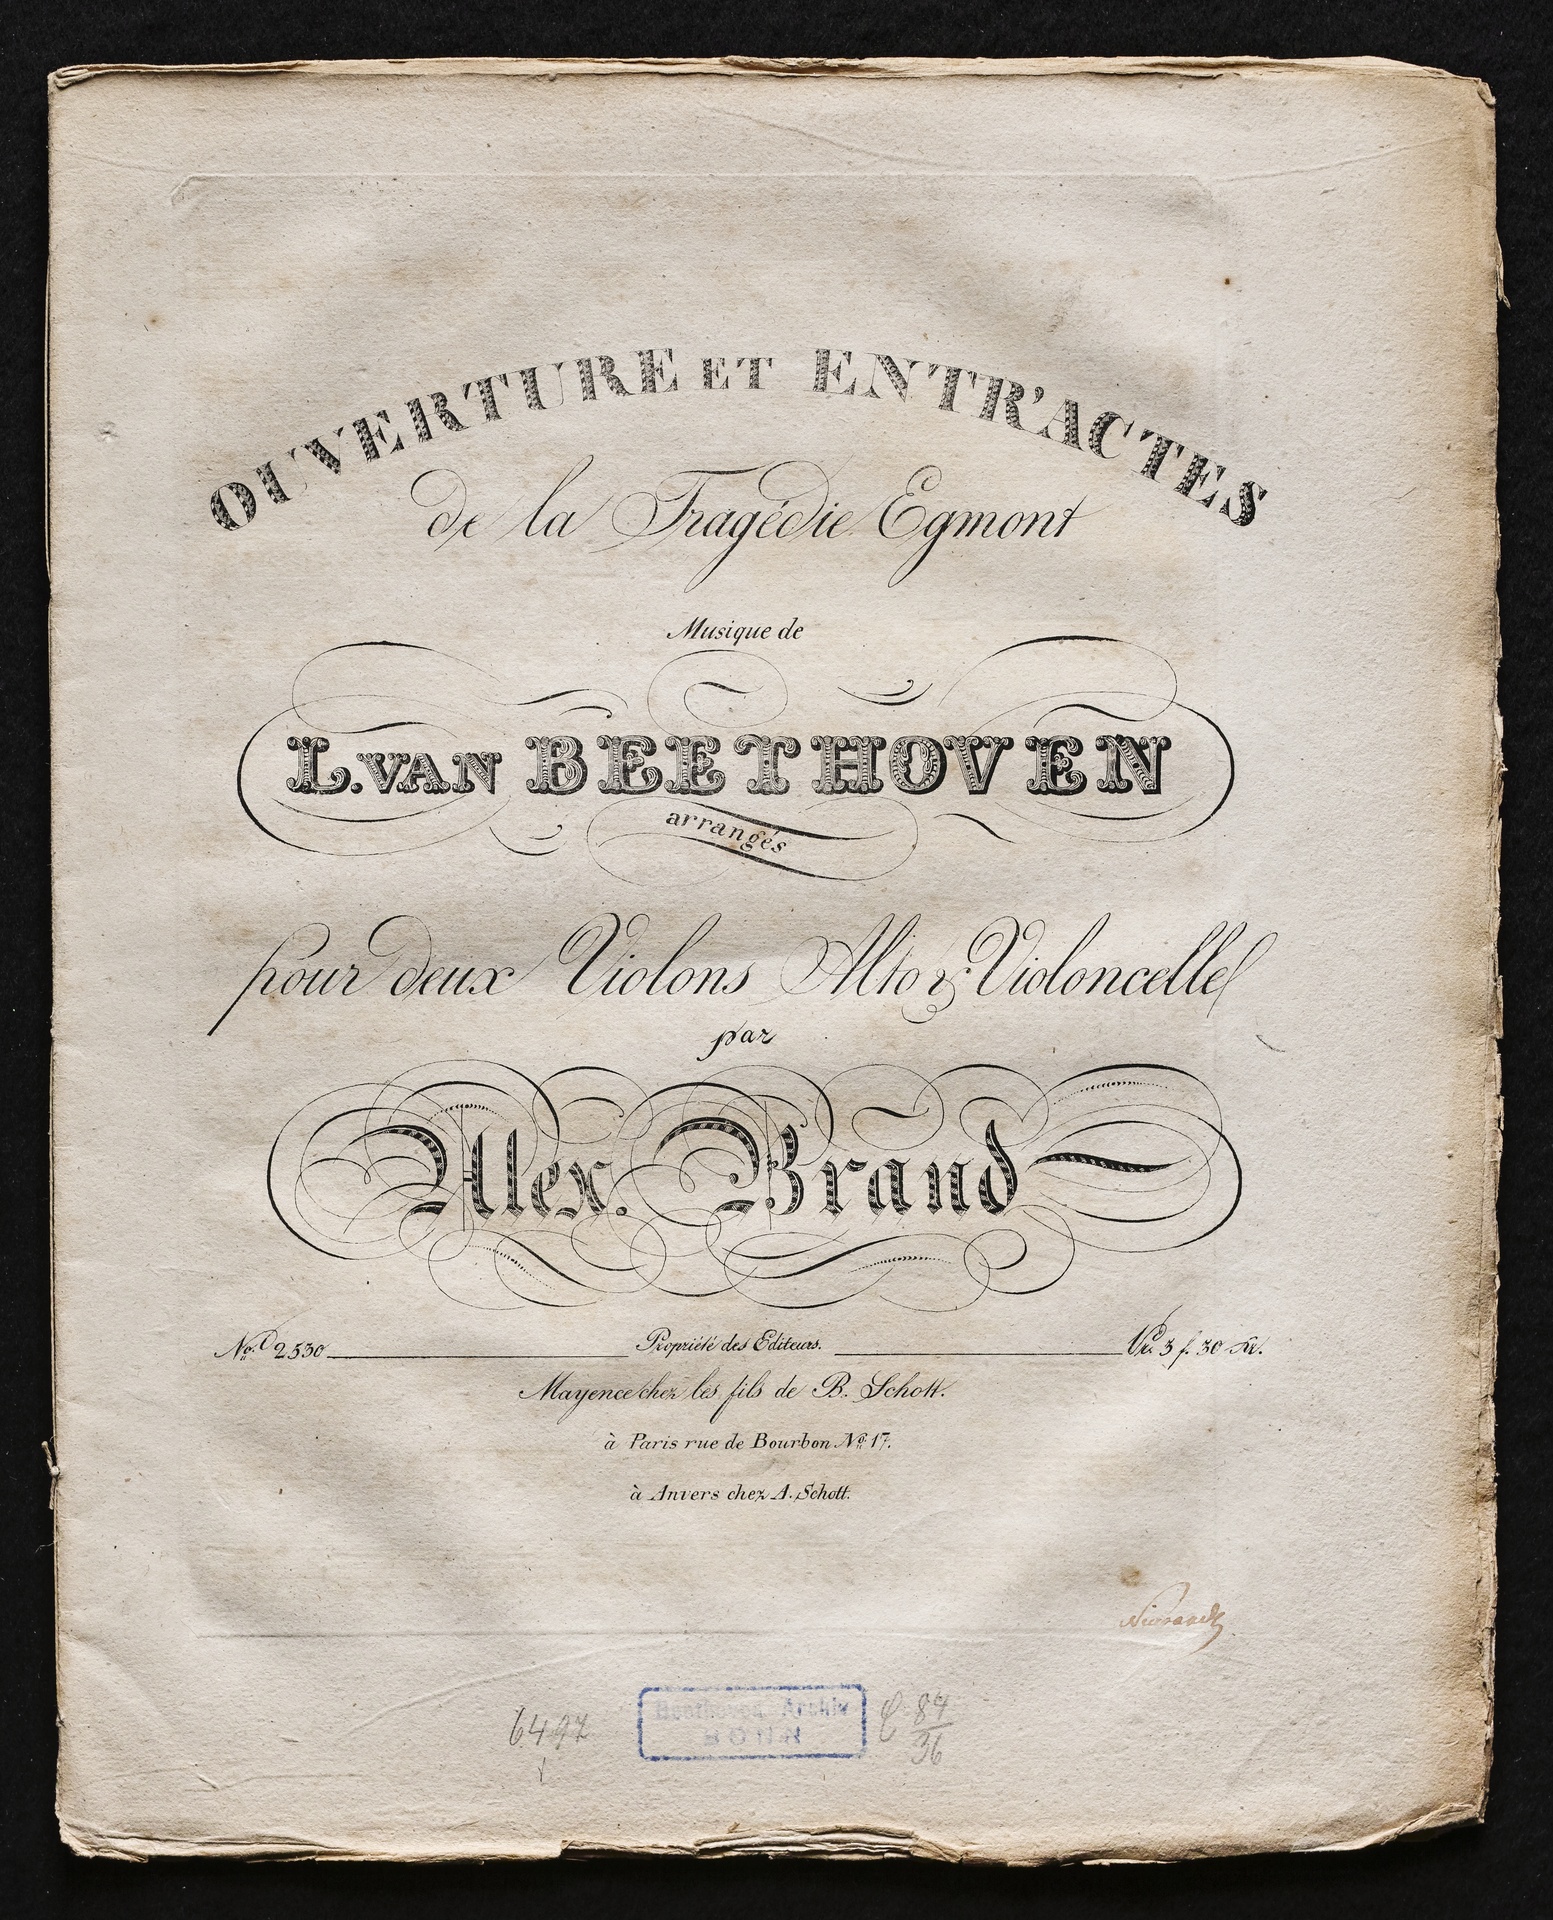 OUVERTURE ET ENTR'ACTES
de la Tragédie Egmont
Musique de
L. VAN BEETHOVEN
arrangés
pour deux Violons Alto & Violoncelle
par
Alex. Brand
No. 2530 Propriété des Editeurs. Pr. 3 f. 30 Kr.
Mayence chez les fils de B. Schott.
à Paris rue de Bourbon No. 17.
à Anvers chez A. Schott.
Beethoven Archiv
BONN
C 84
36